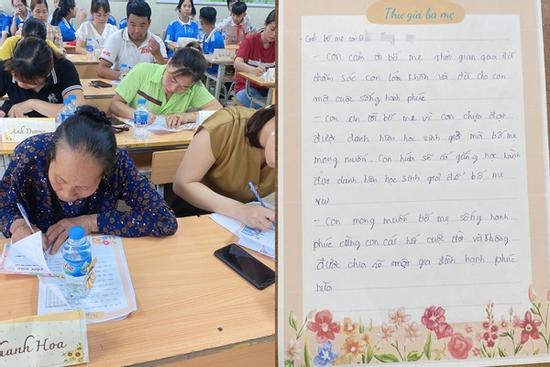 Anh Dương
Oanh Hoa
Thư gửi bố mẹ
Gửi: bố mẹ
- Con cảm ơn bố mẹ thời gian qua đã
chăm sóc con lớn khôn và đã cho con
một cuộc sống hạnh phúc
- Con xin lỗi bố mẹ vì con chưa đạt
được danh hiệu học sinh giỏi mà bố mẹ
mong muốn. Con hứa sẽ cố gắng học hành
đạt danh hiệu học sinh giỏi để bố mẹ
vui
- Con mong muốn bố mẹ sống hạnh
phúc cùng con cái hết cuộc đời và không
được chia sẻ một gia đình hạnh phúc
nữa.